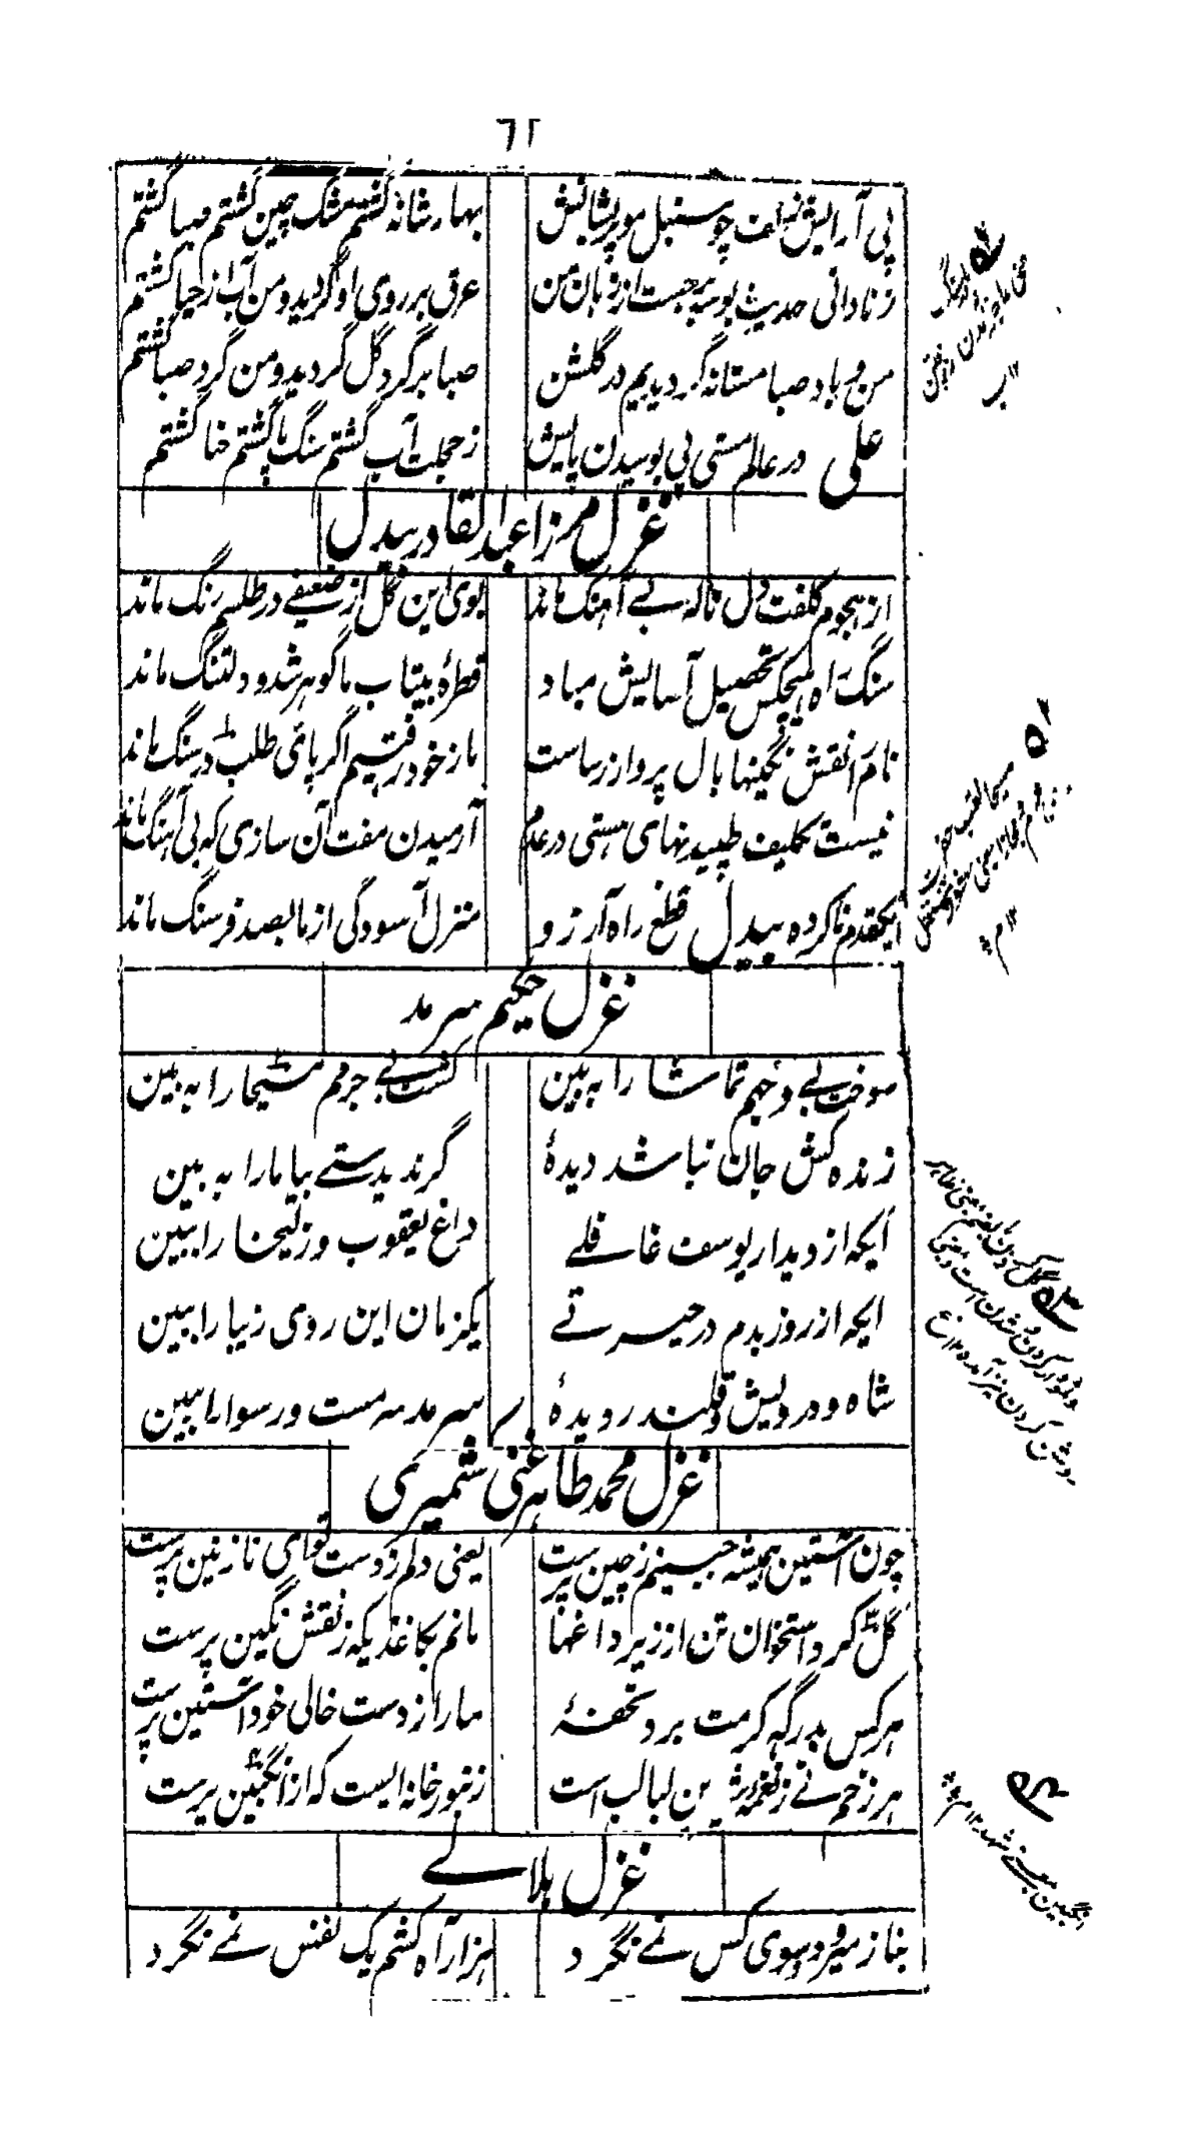 ٦٢
پی آرایش زلف چو سنبل مو پریشانش بهار شانه گشتم مشک چین گشتم صبا گشتم
ز نادانی حدیث بوسه برجست از زبان من عرق بر روی او گردید و من آب از حیا گشتم
من و باد صبا مستانه گردیدیم در گلشن صبا بر گرد گل گردید و من گرد صبا گشتم
علی در عالم مستی پی بوسیدن پایش ز خجلت آب گشتم سنگ پا گشتم حنا گشتم
غزل مرزا عبدالقادر بیدل
از هجوم کلفت دل ناله بے آهنگ ماند بوی این گل از ضعیفے در طلسم رنگ ماند
سنگ راه هیچکس تحصیل آسایش مباد قطرهٔ بیتاب ما گوهر شد و دلتنگ ماند
نام را نقش نگینها بال پرواز رساست ما ز خود رفتیم اگر پائ طلب در سنگ ماند
نیست تکلیف طپیدنهای هستی در عدم آرمیدن مفت آن سازی که بی آهنگ ماند
یکقدم ناکرده بیدل قطع راه آرزو منزل آسودگی از ما بصد فرسنگ ماند
غزل حکیم سرمد
سوخت بے وجهم تماشا را به بین کشت بے جرمم مسیحا را به بین
زنده کش جان نباشد دیدهٔ گر ندیدستے بیا ما را به بین
ایکه از دیدار یوسف غافلے داغ یعقوب و زلیخا را ببین
ایکه از روز بدم در حیرتے یکزمان این روی زیبا را ببین
شاه و درویش و قلندر دیدهٔ سرمد سرمست و رسوا را ببین
غزل محمد طاهر غنی کشمیری
چون آستین همیشه جبینم ز چین پرست یعنی دلم ز دست تو ای نازنین پرست
گل کرد استخوان تن از زیر داغها مانم بکاغذیکه ز نقش نگین پرست
هر کس بدرگه کرمت برد تحفهٔ ما را ز دست خالی خود آستین پرست
هر زخم نے ز نغمه شیرین لبالب است زنبور خانه ایست که از انگبین پرست
غزل هلالے
بناز میرود و سوی کس نمے نگرد هزار آه کشم یک نفس نمے نگرد
انگبین بمعنے شهد ۱۲